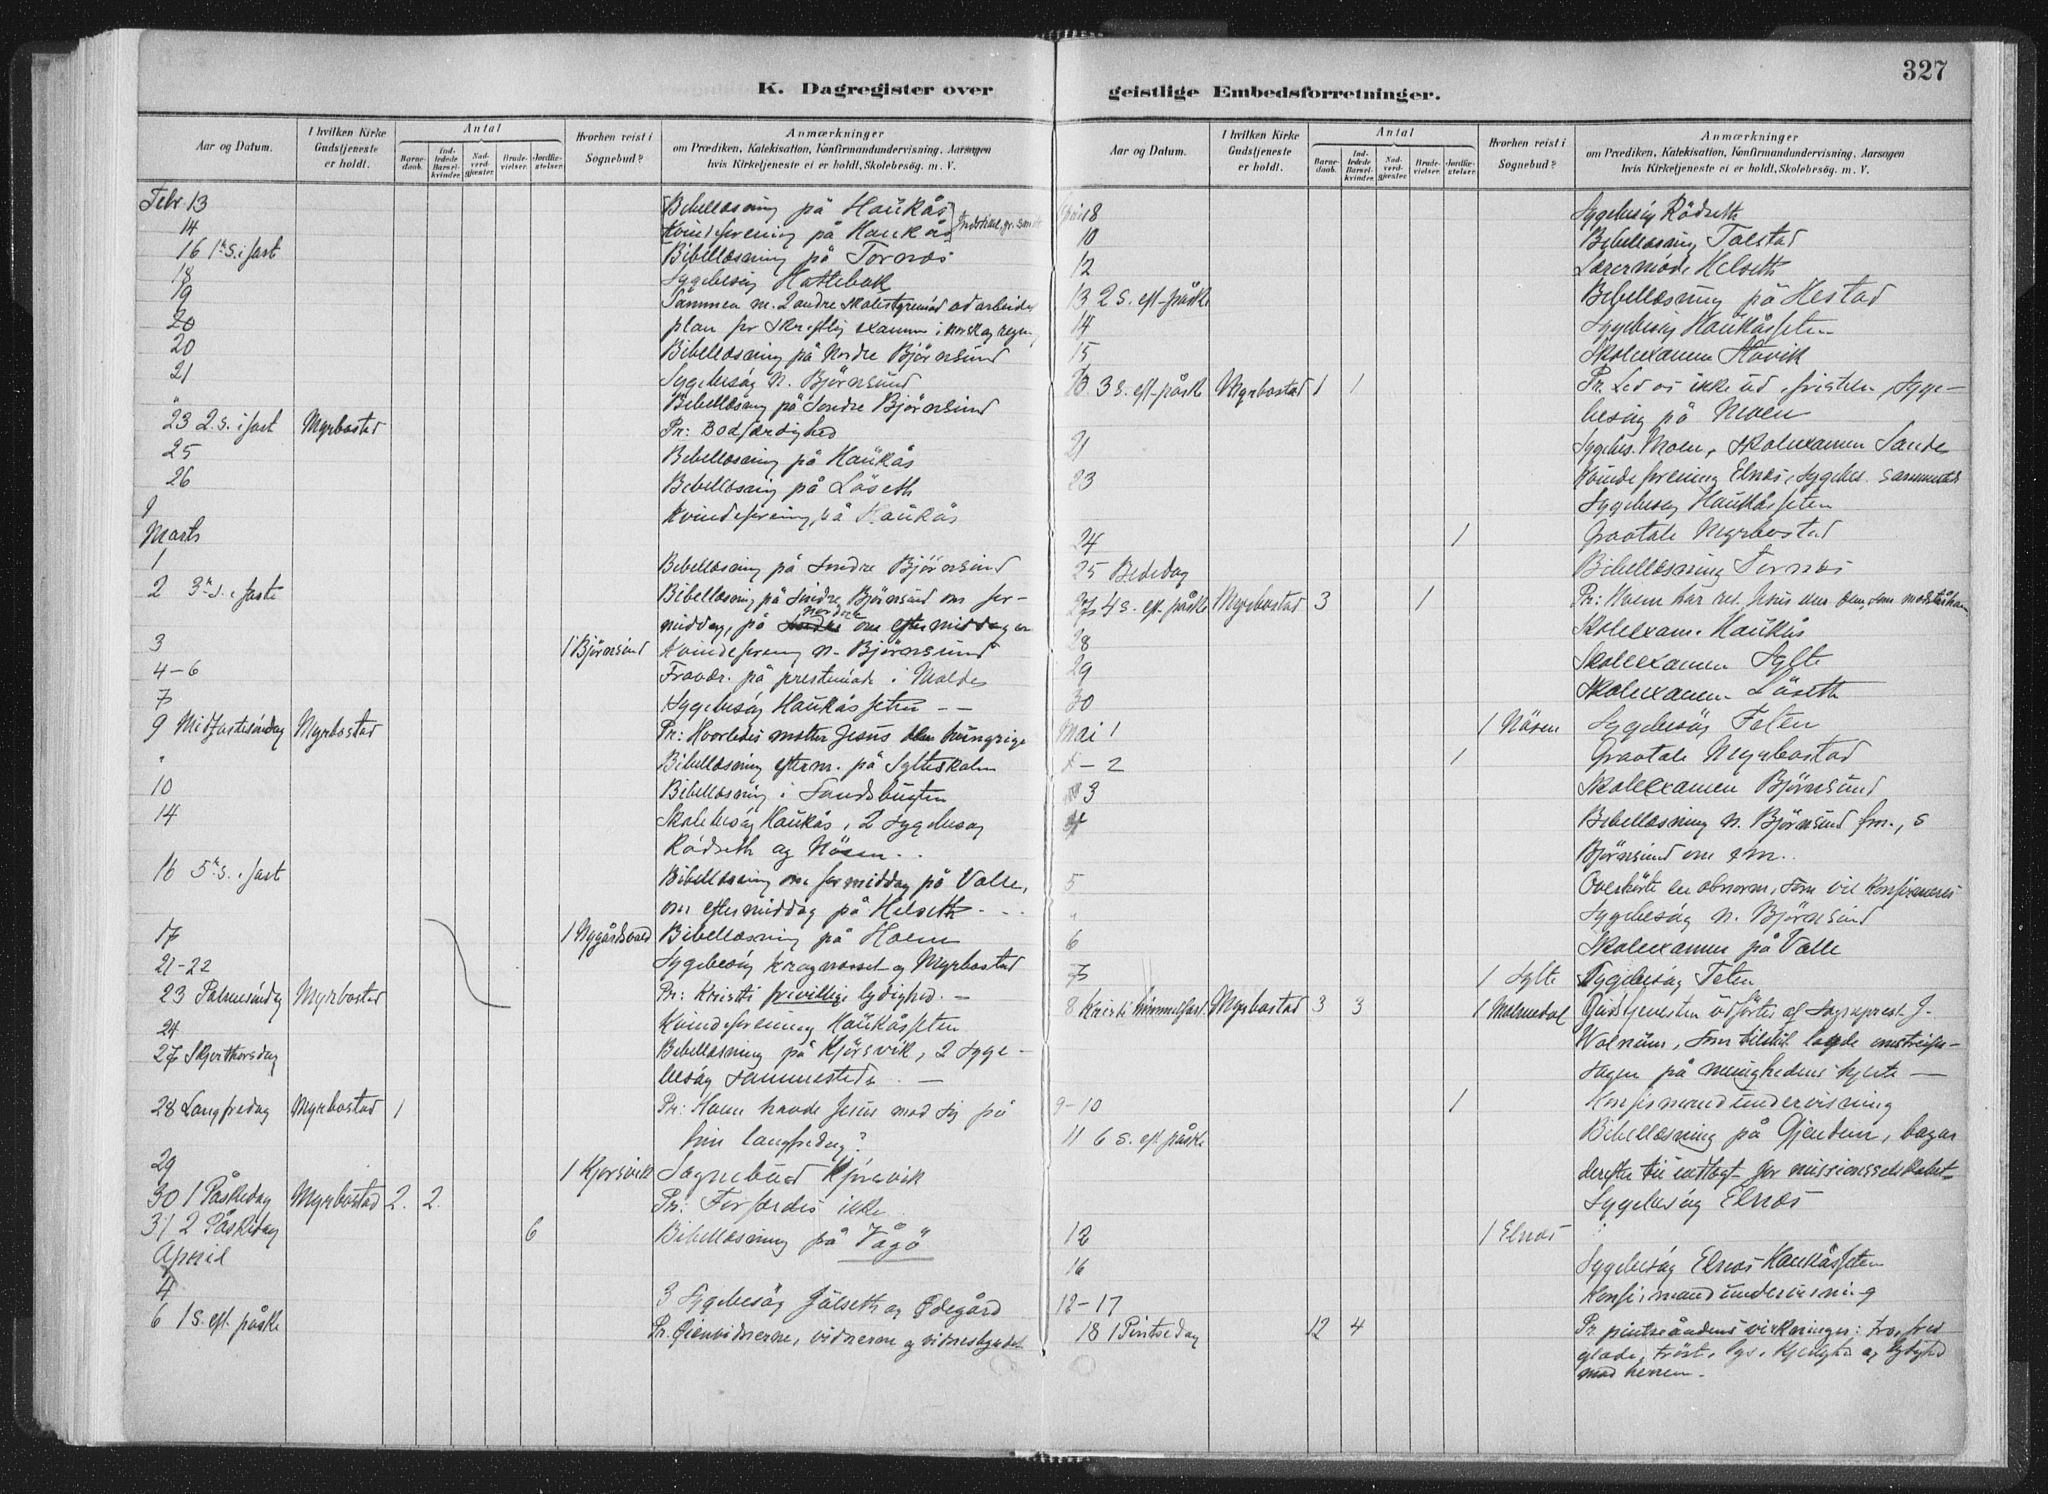 327
K. Dagregister over
geistlige Embedsforretninger.
Aar og Datum. I hvilken Kirke Gudstjeneste er holdt. Antal Barnedaab. Indledede Barselkvinder. Nadverdgjæster. Brudevielser. Jordfæstelser. Hvorhen reist i Sognebud? Anmærkninger om Prædiken, Katekisation, Konfirmandundervisning, Aarsagen hvis Kirketjeneste ei er holdt, Skolebesøg. m. V.
Febr 13 Bibellæsning på Haukås
14 Kvindeforening på Haukås
16 1ste S. i fast Bibellæsning på Tornes
18 Sygebesög Hattebak
19 Sammen m. 2 andre skolestyremed. udarbeidet
20 plan for skriftlig examen i norsk og regn.
20 Bibellæsning på Nordre Björnsund
21 Sygebesög N. Björnsund
" Bibellæsning på Söndre Björnsund
23 2. S. i fast Myrbostad Pr: Bodfærdighed
25 Bibellæsning på Haukås
26 Bibellæsning på Löseth
Kvindeforening på Haukås
Marts
1 Bibellæsning på Söndre Björnsund
2 3. S. i faste Bibellæsning på Söndre Björnsund om for-
middag, på nordre om eftermiddagen
3 1 Björnsund Kvindeforening N. Björnsund
4-6 Fravær. på prestemöde i Molde
7 Sygebesög Haukåssetren - -
9 Midfastesöndag Myrbostad Pr: Hvorledes mætter Jesus den hungrige
" Bibellæsning efterm. på Sylteskolen
10 Bibellæsning i Sandsbugten
14 Skolebesög Haukås, 2 Sygebesög
Rödseth og Näsen. . .
16 5. S. i fast Bibellæsning om formiddag på Valle,
om eftermiddag på Helseth - . .
17 1 Nygårdsvald Bibellæsning på Holm
21-22 Sygebesög Kragnæset og Myrbostad
23 Palmesöndag Myrbostad Pr: Kristi frivillige lydighed. -
24 Kvindeforening Haukåssetren
27 Skjærthorsdag Bibellæsning på Kjörsvik, 2 syge-
besög sammesteds . -
28 Langfredag Myrbostad 1 Pr: Hvem havde Jesus med sig på
sin langfredag?
29 1 Kjorsvik Sognebud Kjörsvik
30 1 Påskedag Myrbostad 2. 2. Pr: Forfærdes ikke
31 2 Påskedag 6 Bibellæsning på Vågö
April
4 3 Sygebesög Julseth og Ødegård
6 1 S. eft. påske Pr. Øienvidnerne, vidnerne og vidnesbyrdet
Aar og Datum. I hvilken Kirke Gudstjeneste er holdt. Antal Barnedaab. Indledede Barselkvinder. Nadverdgjæster. Brudevielser. Jordfæstelser. Hvorhen reist i Sognebud? Anmærkninger om Prædiken, Katekisation, Konfirmandundervisning, Aarsagen hvis Kirketjeneste ei er holdt, Skolebesög. m. V.
April 8 Sygebesög Rödseth
10 Bibellæsning Tolstad
12 Lærermöde Helseth
13 2 S. eft. påske Bibellæsning på Hestad
14 Sygebesög Haukåssetren
15 Skolexamen Havik
3 S. eft. påske Myrbostad 1 1 Pr. Led os ikke ud i fristelse, Syge-
besög på Moen
21 Sygebes. Moen, skolexamen Sande
23 Kvindeforening Elnes, Sygebes. sammesteds
Sygebesög Haukåssetren
24 1 Gravtale Myrbostad
25 Bededag Bibellæsning Tornes
27 4 S. eft. påske Myrbostad 3 1 Pr: Hvem har ret, Jesus eller dem, som modstår ham
28 Skolexam. Haukås
29 Skolexamen Sylte
30 Skolexamen Löseth
Mai 1 1 Näsen Sygebesög Teten
- 2 1 Gravtale Myrbostad
3 Skolexamen Björnsund
4 Bibellæsning N. Björnsund fm., S
Björnsund om em..
5 Overhörte en abnorm, som vil konfirmeres
" Sygebesög N. Björnsund
6 Skolexamen på Valle
7 1 Sylte Sygebesög Teten
8 Kristi himmelfart. Myrbostad 3 3 1 Malmedal Gudstjenesten udförtes af Sogneprest J.
Walnum, som tilslut lagde
sagen på menighedens hjerte -
9-10 1 Konfirmandundervisning
11 6 S. eft. påske Bibellæsning på Gjendem, bazar
derefter til indtægt for missionsselskabet
Sygebesög Elnes
12 1 Elnes
16 Sygebesög Elnes Haukåssetren
12-17 Konfirmandundervisning
18 1 Pintsedag 12 4 Pr. pintseåndens virkninger: tro, fred
glæde, tröst, lys, kjærlighed og lydighed
mod herren.